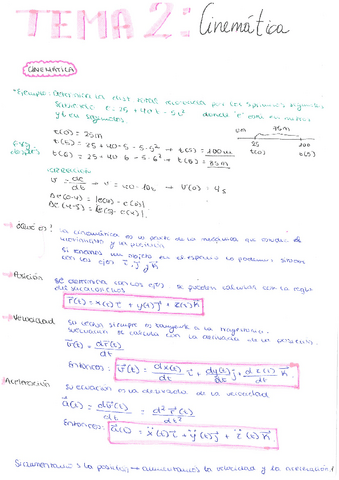 TEMA 2: Cinemática
CINEMÁTICA
*Ejemplo: Determina la dist. total recorrida por los segundos
r = 25 + 40t - 5t² donde "r" está en metros
y t en segundos.
r(0) = 25m
t(5) = 25 + 40·5 - 5·5² → r(5) = 100m
t(6) = 25 + 40·6 - 5·6² → r(6) = 85m
0m 75m
25 100
t(0) t(5)
v = dr/dt → v = 40 - 10t → v(0) = 4s
la cinemática es la parte de la mecánica que estudia el
movimiento y la posición
Si tenemos un objeto en el espacio lo podemos situar
con los ejes i, j y k
→ Posición
se determina con los ejes se pueden calcular con la regla
r(t) = x(t) i + y(t) j + z(t) k
→ Velocidad su vector siempre es tangente a la trayectoria.
se calcula con la derivada de la posición.
v(t) = dr(t)/dt
Entonces: v(t) = dx(t)/dt i + dy(t)/dt j + dz(t)/dt k
→ Aceleración su ecuación es la derivada de la velocidad
a(t) = dv(t)/dt = d²r(t)/dt²
Entonces: a(t) = ẍ(t) i + ÿ(t) j + z̈(t) k
Si aumentamos la posición → aumentamos la velocidad y la aceleración!